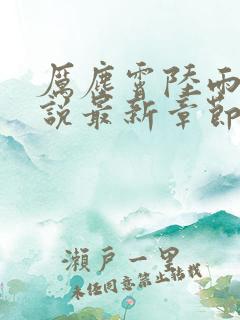 厲塵霄陸雨
說最新章節
瀨戶一里
未经同意禁止转载